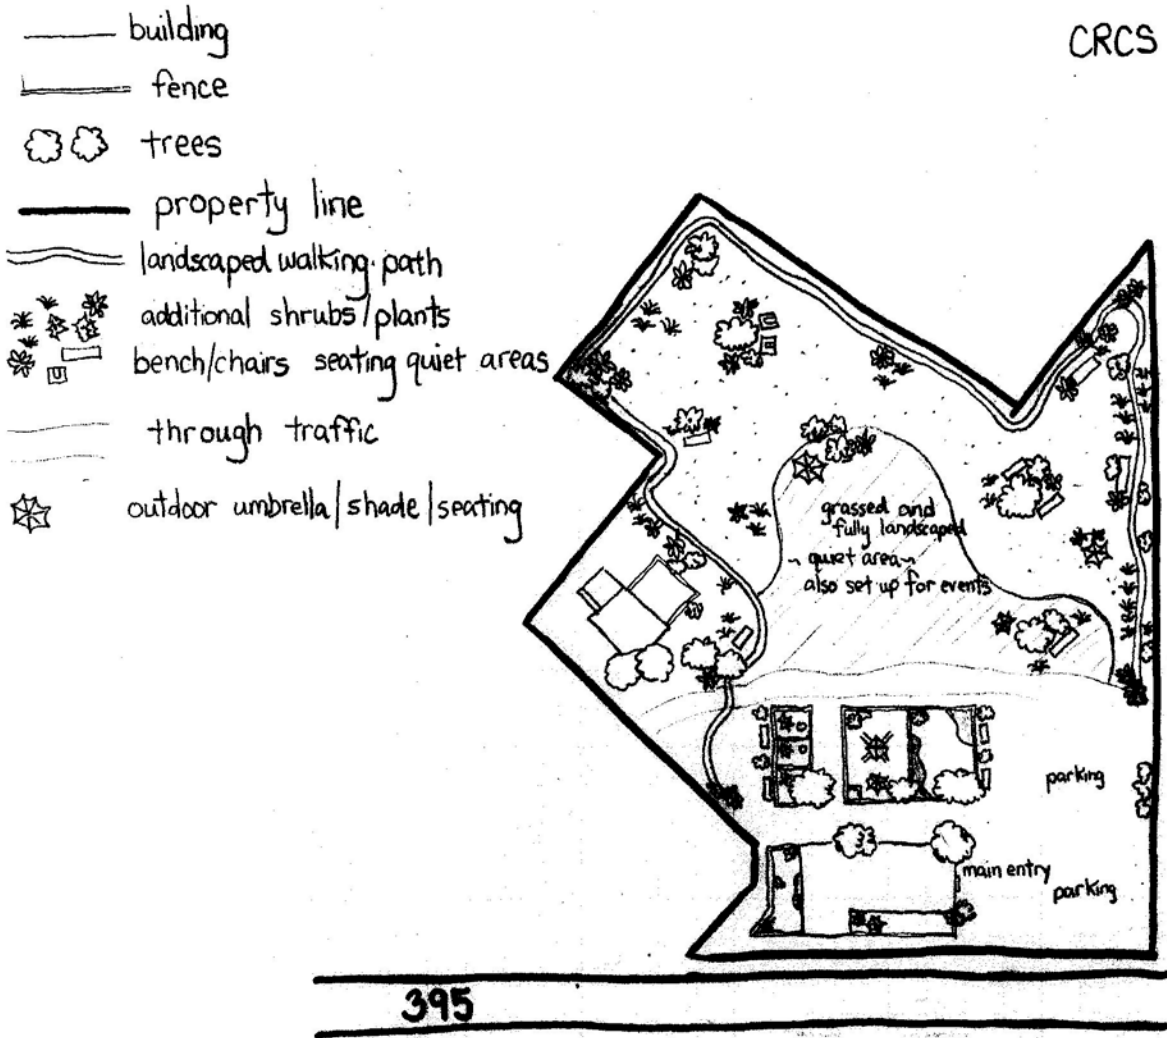 building
CRCS
fence
trees
property line
landscaped walking path
additional shrubs/plants
bench/chairs seating quiet areas
through traffic
outdoor umbrella/shade/seating
grassed and
fully landscaped
~ quiet area ~
also set up for events
parking
main entry
parking
395